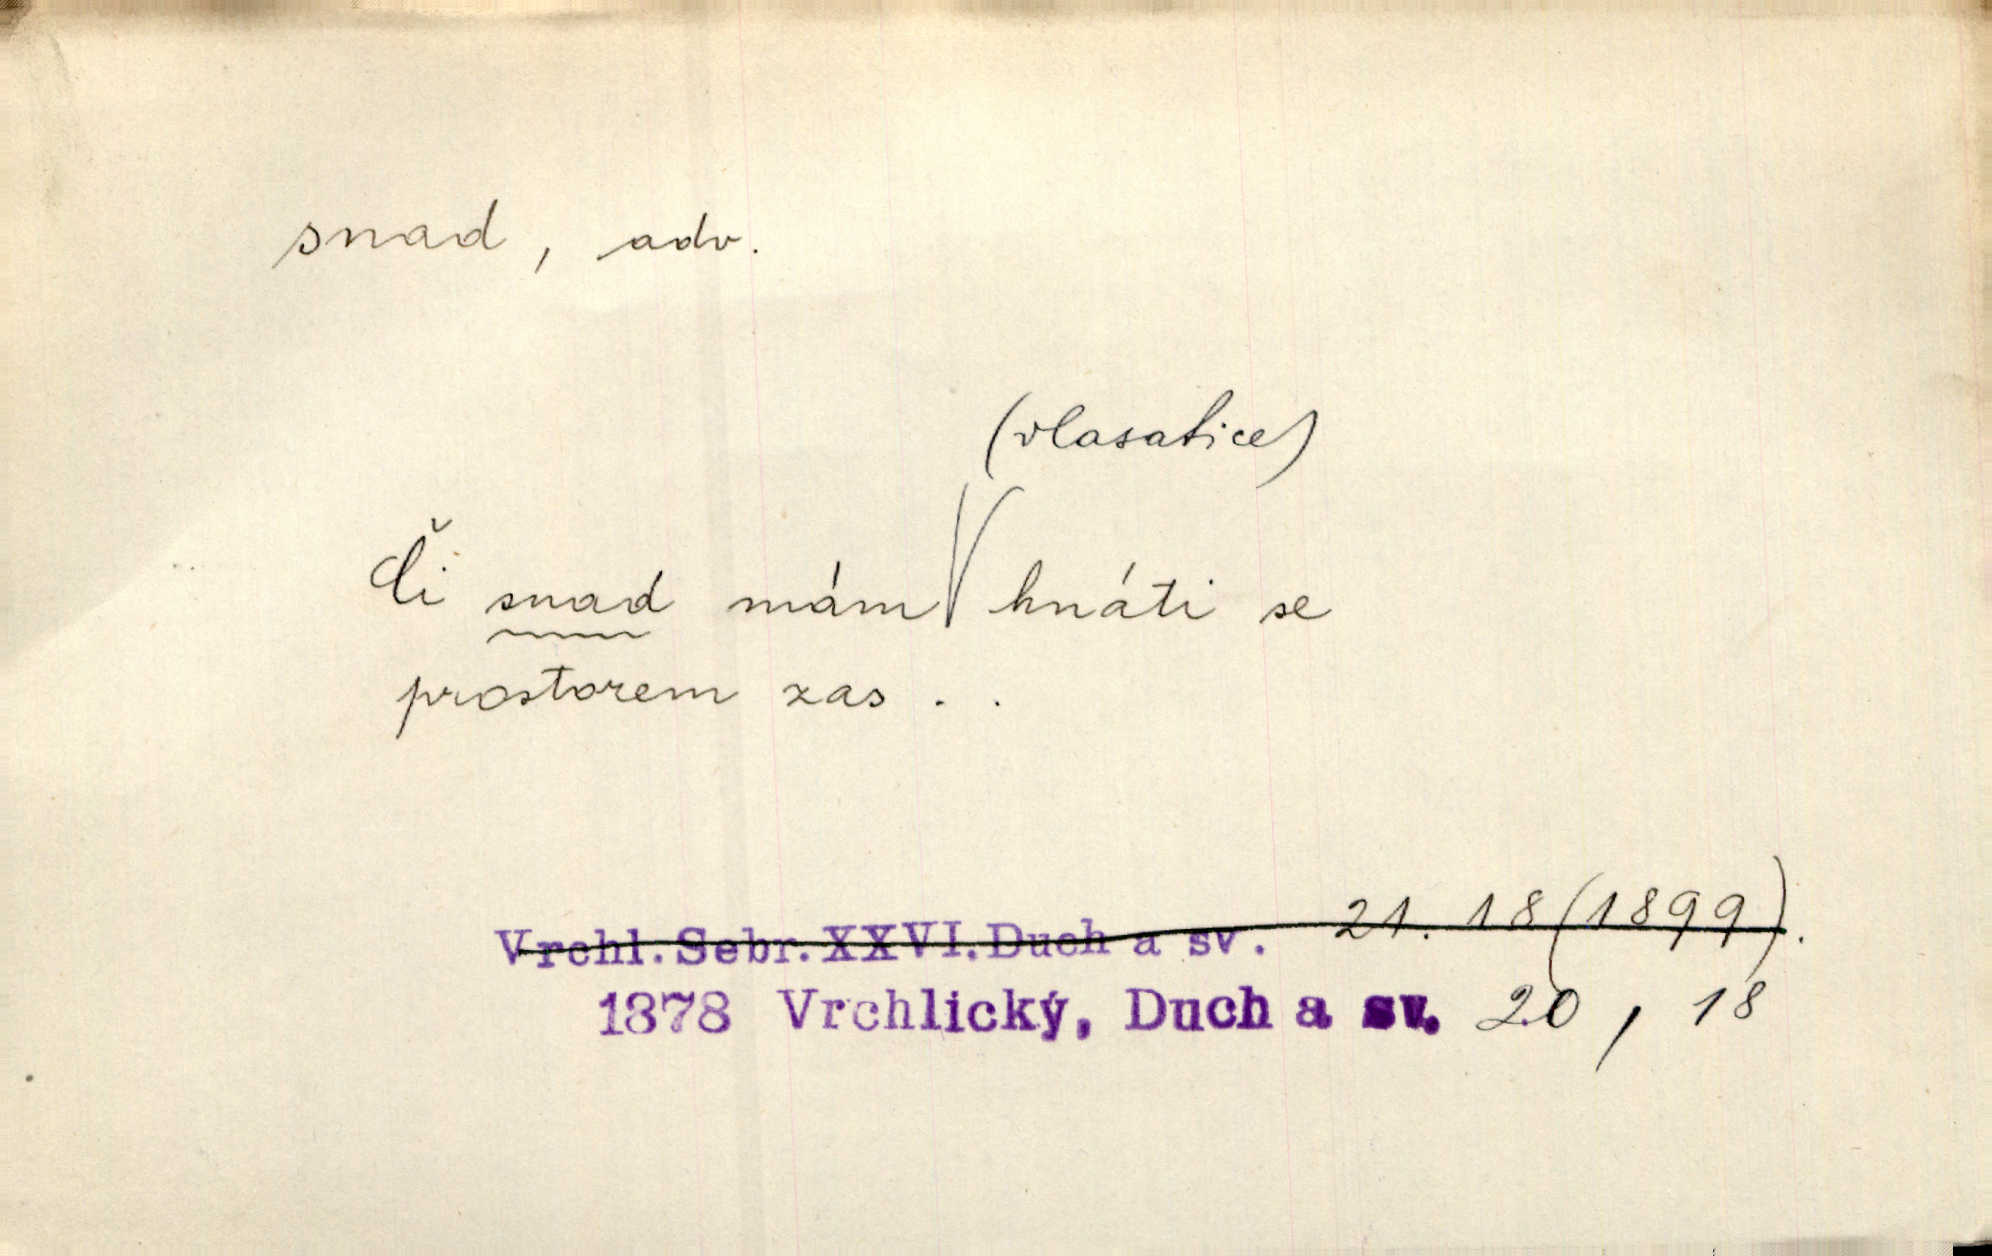 snad, adv.
(vlasatice)
Či snad mám hnáti se
prostorem zas . .
Vrchl. Sebr. XXVI. Duch a sv. 21. 18 (1899).
1878 Vrchlický, Duch a sv. 20, 18